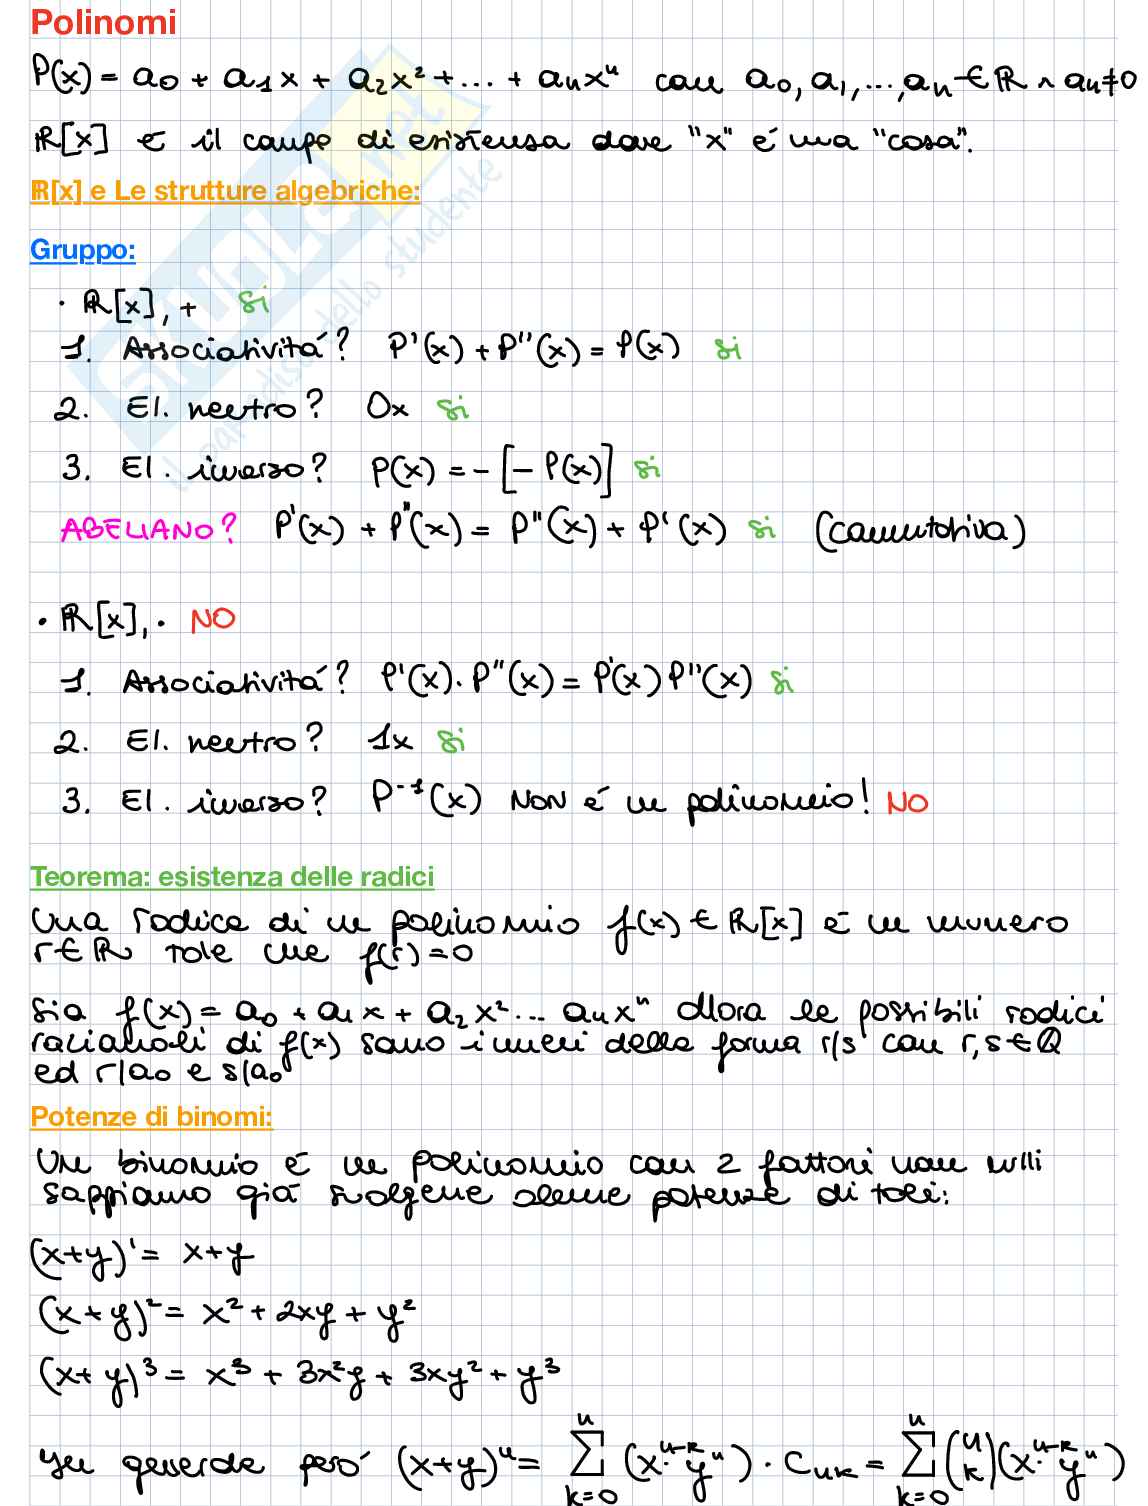 Polinomi
P(x) = a₀ + a₁x + a₂x² + ... + aₙxⁿ con a₀, a₁, ..., aₙ ∈ ℝ ∧ aₙ≠0
ℝ[x] è il campo di esistenza dove "x" é una "cosa".
ℝ[x] e Le strutture algebriche:
Gruppo:
· ℝ[x], + Si
1. Associativitá? P'(x) + P''(x) = P(x) si
2. El. neutro? 0x Si
3. El. inverso? P(x) = - [- P(x)] si
ABELIANO? P'(x) + P''(x) = P''(x) + P'(x) si (commutativa)
· ℝ[x], · NO
1. Associativitá? P'(x) · P''(x) = P'(x) P''(x) si
2. El. neutro? 1x Si
3. El. inverso? P⁻¹(x) NON é un polinomio! NO
Teorema: esistenza delle radici
Una radice di un polinomio f(x) ∈ ℝ[x] é un numero
r ∈ ℝ tale che f(r) = 0
Sia f(x) = a₀ + a₁x + a₂x² ... aₙxⁿ allora le possibili radici
razionali di f(x) sono i numeri della forma r/s con r, s ∈ ℚ
ed r|a₀ e s|a₀
Potenze di binomi:
Un binomio é un polinomio con 2 fattori non nulli
sappiamo giá svolgere alcune potenze di tali:
(x+y)¹ = x+y
(x+y)² = x² + 2xy + y²
(x+y)³ = x³ + 3x²y + 3xy² + y³
In generale peró (x+y)ⁿ = ∑ₖ₌₀ⁿ (xⁿ⁻ᵏ · yⁿ) · Cₙₖ = ∑ₖ₌₀ⁿ (n k)(xⁿ⁻ᵏ · yⁿ)
SKUOLA.net